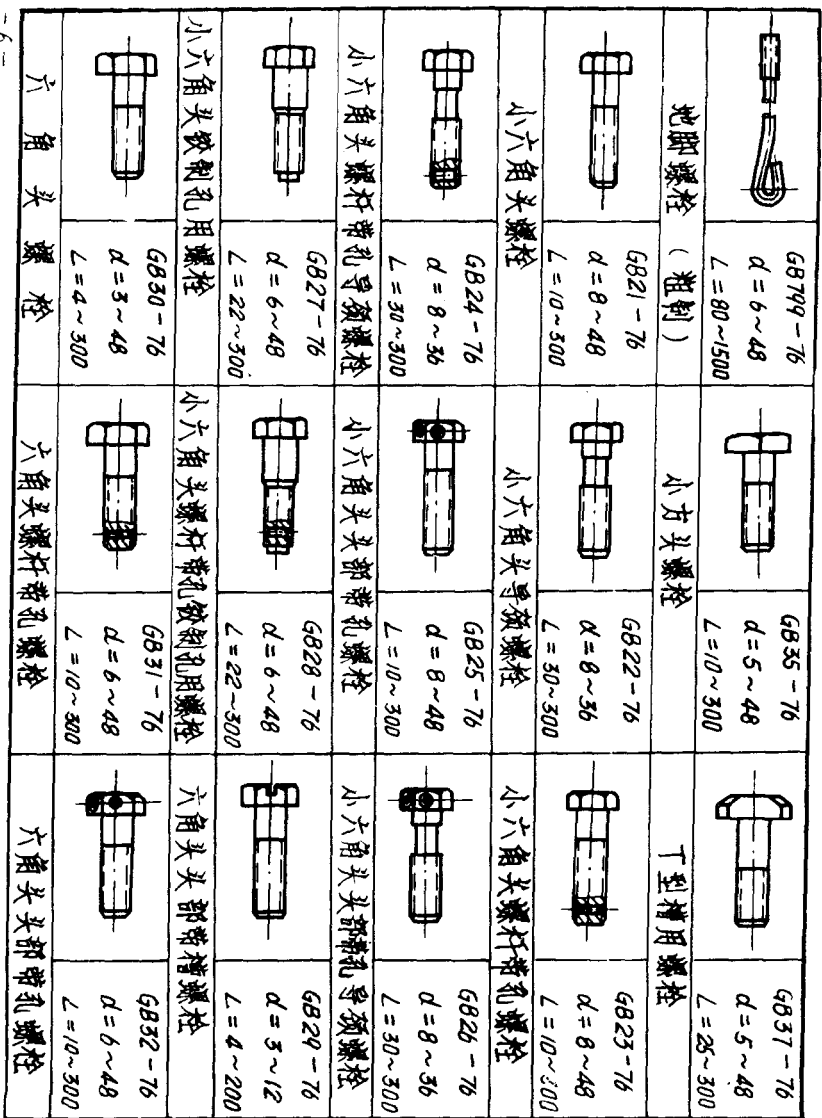 GB799-76
d=6~48
L=80~1500
GB35-76
d=5~48
L=10~300
GB37-76
d=5~48
L=25~300
地脚螺栓（粗制）
小方头螺栓
T型槽用螺栓
GB21-76
d=8~48
L=10~300
GB22-76
d=8~36
L=30~300
GB23-76
d=8~48
L=10~300
小六角头螺栓
小六角头导颈螺栓
小六角头螺杆带孔螺栓
GB24-76
d=8~36
L=30~300
GB25-76
d=8~48
L=10~300
GB26-76
d=8~36
L=30~300
小六角头螺杆带孔导颈螺栓
小六角头头部带孔螺栓
小六角头头部带孔导颈螺栓
GB27-76
d=6~48
L=22~300
GB28-76
d=6~48
L=22~300
GB29-76
d=3~12
L=4~200
小六角头铰制孔用螺栓
小六角头螺杆带孔铰制孔用螺栓
六角头头部带槽螺栓
GB30-76
d=3~48
L=4~300
GB31-76
d=6~48
L=10~300
GB32-76
d=6~48
L=10~300
六角头螺栓
六角头螺杆带孔螺栓
六角头头部带孔螺栓
-6-